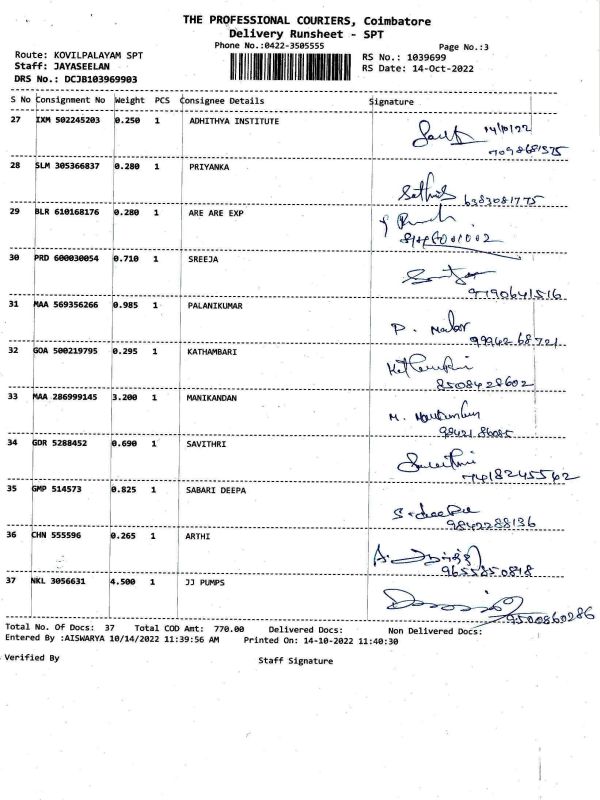 THE PROFESSIONAL COURIERS, Coimbatore
Delivery Runsheet - SPT
Phone No.:0422-3505555
Page No.:3
Route: KOVILPALAYAM SPT
RS No.: 1039699
Staff: JAYASEELAN
RS Date: 14-Oct-2022
DRS No.: DCJB103969903
S No Consignment No Weight PCS Consignee Details Signature
27 IXM 502245203 0.250 1 ADHITHYA INSTITUTE
14/10/22
28 SLM 305366837 0.280 1 PRIYANKA
Sathis 6383081775
29 BLR 610168176 0.280 1 ARE ARE EXP
30 PRD 600030054 0.710 1 SREEJA
9790641516
31 MAA 569356266 0.985 1 PALANIKUMAR
9994268721
32 GOA 500219795 0.295 1 KATHAMBARI
8508428602
33 MAA 286999145 3.200 1 MANIKANDAN
34 GDR 5288452 0.690 1 SAVITHRI
Savithri
7418245562
35 GMP 514573 0.825 1 SABARI DEEPA
S. deepa
9842288136
36 CHN 555596 0.265 1 ARTHI
9655850848
37 NKL 3056631 4.500 1 JJ PUMPS
9500860286
Total No. Of Docs: 37 Total COD Amt: 770.00 Delivered Docs: Non Delivered Docs:
Entered By :AISWARYA 10/14/2022 11:39:56 AM Printed On: 14-10-2022 11:40:30
Verified By
Staff Signature